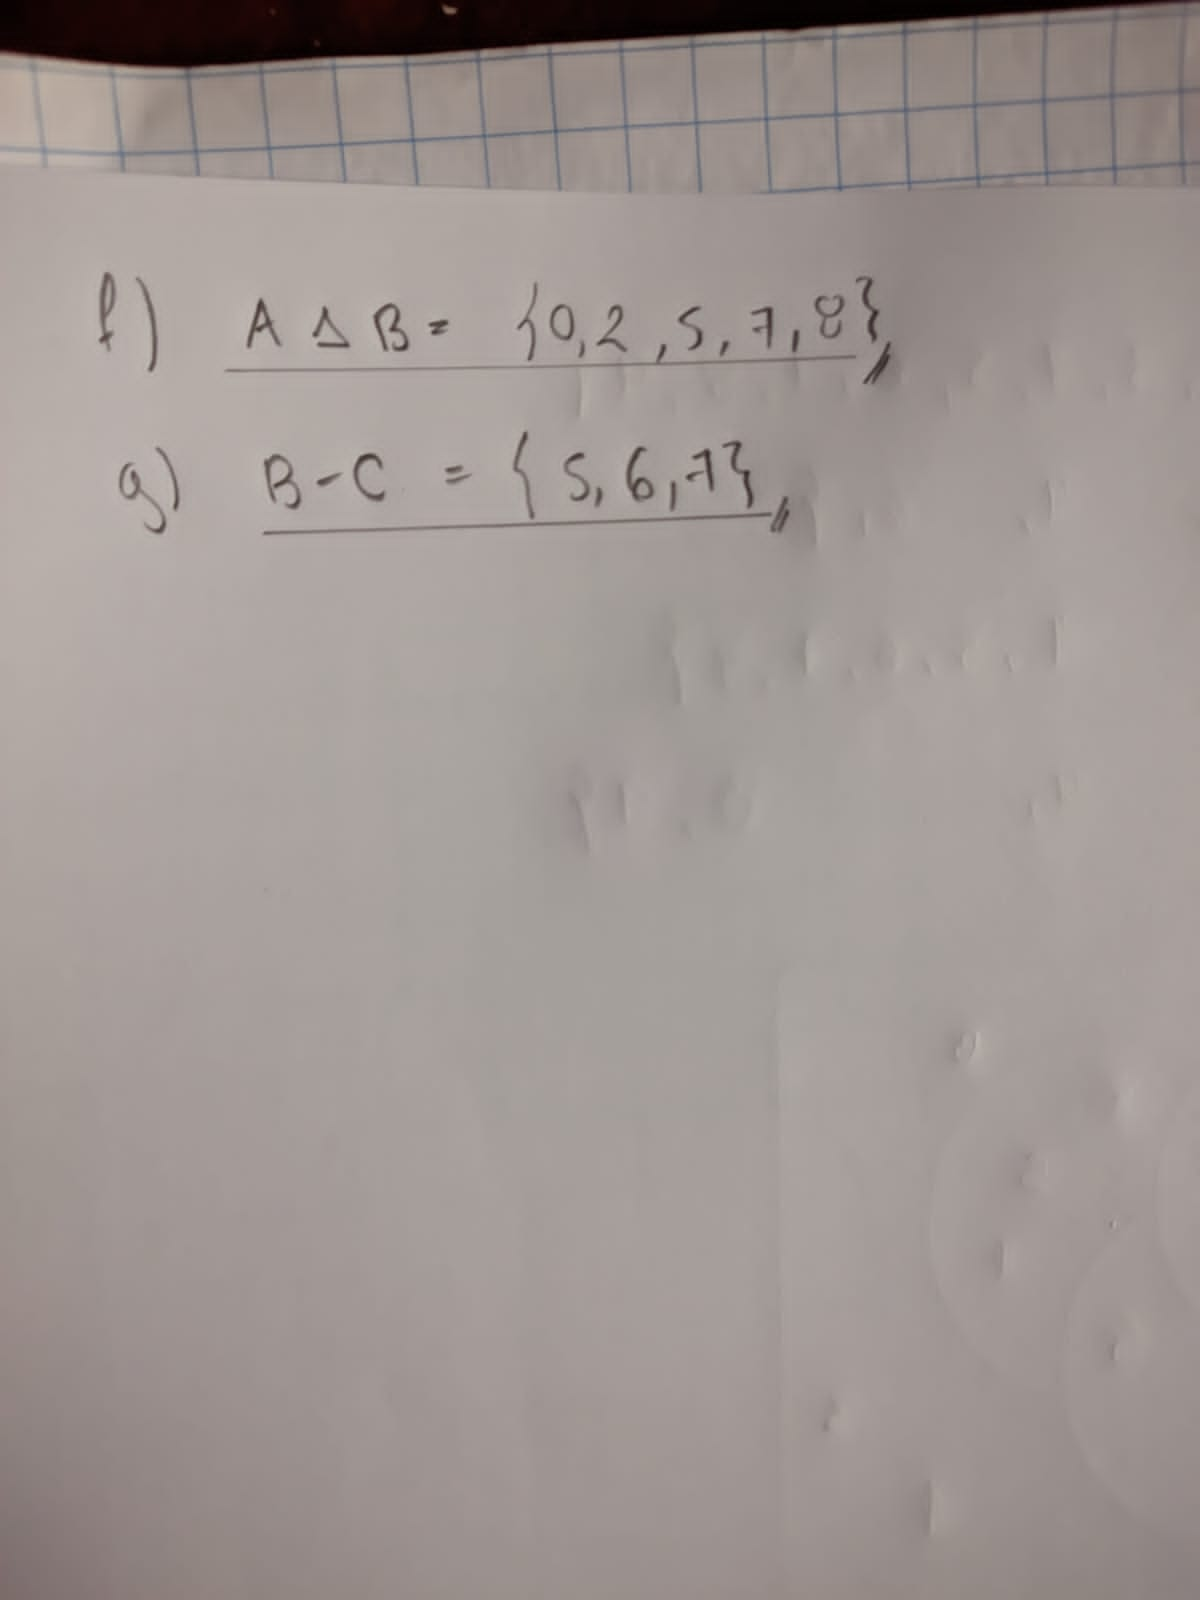 f) A Δ B = {0,2,5,7,8}
g) B-C = {5,6,7}